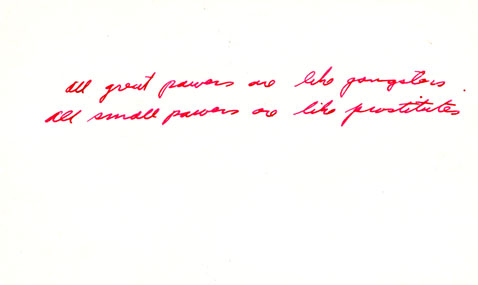 all great powers are like gangsters.
all small powers are like prostitutes